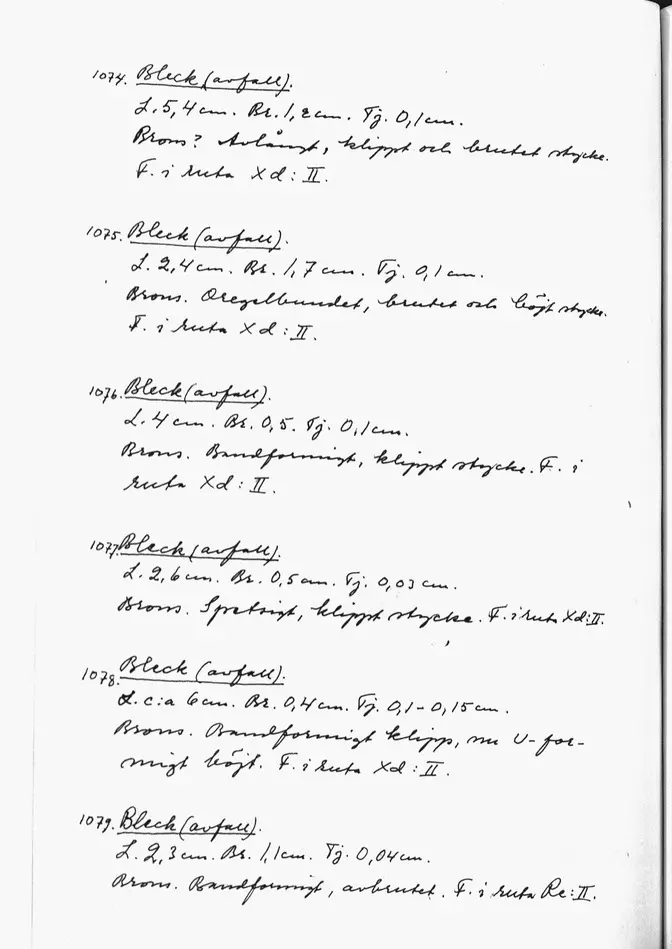 1074. Bleck (avfall).
L. 5,4 cm. Br. 1,2 cm. Tj. 0,1 cm.
Brons? Avlångt, klippt och brutet stycke.
F. i ruta Xd: II.
1075. Bleck (avfall).
L. 2,4 cm. Br. 1,7 cm. Tj. 0,1 cm.
Brons. Oregelbundet, brutet och böjt stycke.
F. i ruta Xd: II.
1076. Bleck (avfall).
L. 4 cm. Br. 0,5. Tj. 0,1 cm.
Brons. Bandformigt, klippt stycke. F. i
ruta Xd: II.
1077. Bleck (avfall).
L. 2,6 cm. Br. 0,5 cm. Tj. 0,03 cm.
Brons. Spetsigt, klippt stycke. F. i ruta Xd: II.
1078. Bleck (avfall).
L. c:a 6 cm. Br. 0,4 cm. Tj. 0,1-0,15 cm.
Brons. Bandformigt klipp, nu U-for-
migt böjt. F. i ruta Xd: II.
1079. Bleck (avfall).
L. 2,3 cm. Br. 1,1 cm. Tj. 0,04 cm.
Brons. Bandformigt, avbrutet. F. i ruta Re: II.